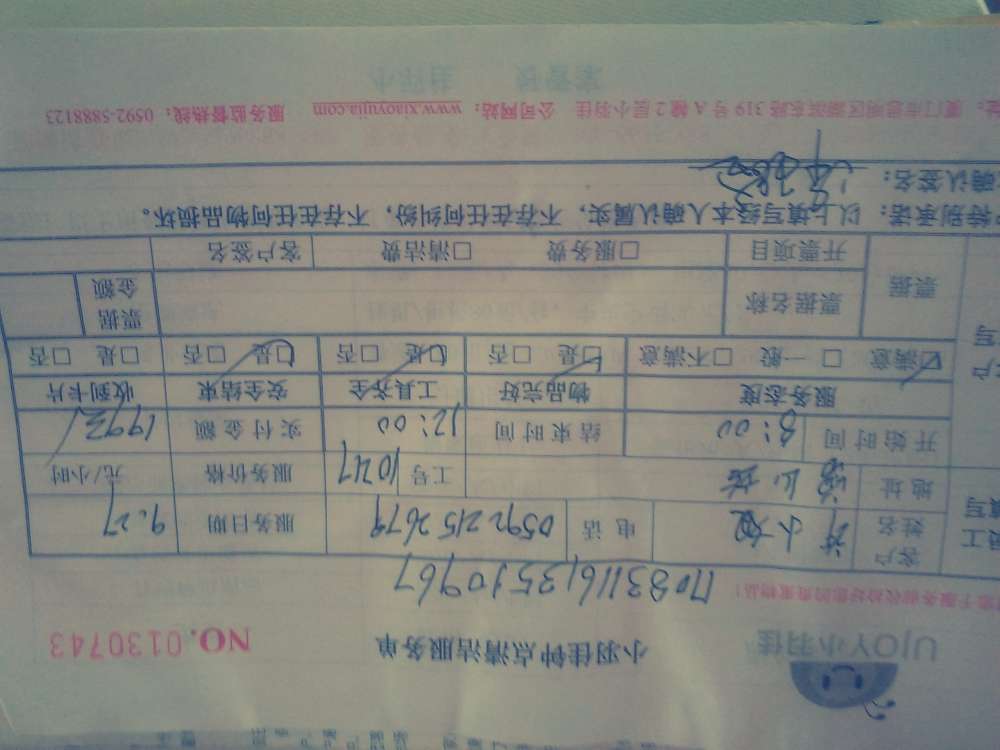 UJOY小羽佳 小羽佳钟点清洁服务单 NO.0130743
客户姓名 许小姐 电话 05922152679 服务日期 9.27
地址 工号 1047 服务价格 元/小时
开始时间 8:00 结束时间 12:00 实付金额
服务态度 物品完好 工具齐全 安全结束 收到卡片
☑满意 □一般 □不满意 ☑是 □否 ☑是 □否 ☑是 □否 □是 □否
票据 票据名称 票据金额
开票项目 □服务费 □清洁费 客户签名
特别承诺：以上填写经本人确认属实，不存在任何纠纷，不存在任何物品损坏。
确认签名：
厦门市思明区湖滨东路319号A幢2层小羽佳 公司网站：www.xiaoyujia.com 服务监督热线：0592-5888123